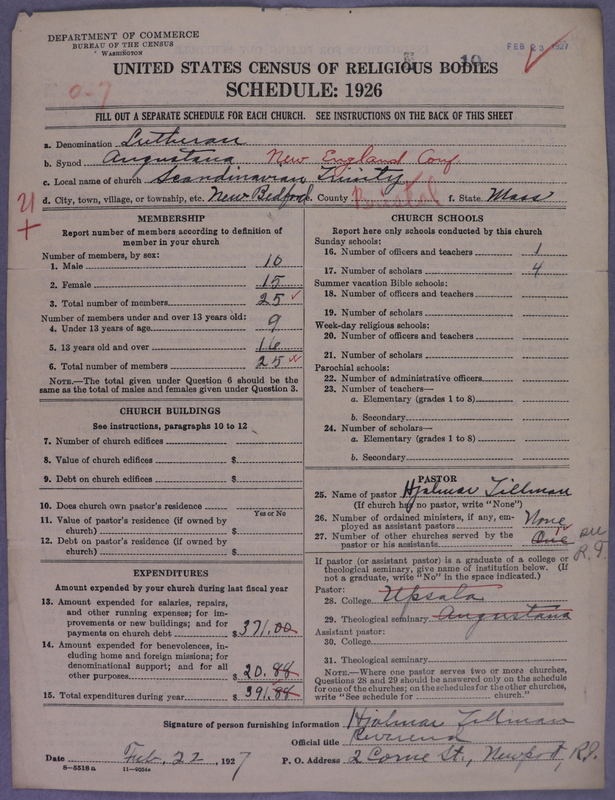 DEPARTMENT OF COMMERCE
BUREAU OF THE CENSUS
WASHINGTON
FEB 23 1927
10
UNITED STATES CENSUS OF RELIGIOUS BODIES
SCHEDULE: 1926
0-7
FILL OUT A SEPARATE SCHEDULE FOR EACH CHURCH. SEE INSTRUCTIONS ON THE BACK OF THIS SHEET
a. Denomination Lutheran
b. Synod Augustana New England Conf
c. Local name of church Scandinavian Trinity
d. City, town, village, or township, etc. New Bedford e. County Bristol f. State Mass
MEMBERSHIP
Report number of members according to definition of
member in your church
Number of members, by sex:
1. Male 10
2. Female 15
3. Total number of members 25
Number of members under and over 13 years old:
4. Under 13 years of age 9
5. 13 years old and over 16
6. Total number of members 25
NOTE.—The total given under Question 6 should be
same as the total of males and females given under Question 3.
CHURCH BUILDINGS
See instructions, paragraphs 10 to 12
7. Number of church edifices
8. Value of church edifices $
9. Debt on church edifices $
10. Does church own pastor's residence
Yes or No
11. Value of pastor's residence (if owned by
church) $
12. Debt on pastor's residence (if owned by
church) $
EXPENDITURES
Amount expended by your church during last fiscal year
13. Amount expended for salaries, repairs,
and other running expenses; for im-
provements or new buildings; and for
payments on church debt $371.00
14. Amount expended for benevolences, in-
cluding home and foreign missions; for
denominational support; and for all
other purposes $20.88
15. Total expenditures during year $391.88
CHURCH SCHOOLS
Report here only schools conducted by this church
Sunday schools:
16. Number of officers and teachers 1
17. Number of scholars 4
Summer vacation Bible schools:
18. Number of officers and teachers
19. Number of scholars
Week-day religious schools:
20. Number of officers and teachers
21. Number of scholars
Parochial schools:
22. Number of administrative officers
23. Number of teachers—
a. Elementary (grades 1 to 8)
b. Secondary
24. Number of scholars—
a. Elementary (grades 1 to 8)
b. Secondary
PASTOR
25. Name of pastor Hjalmar Tillman
(If church has no pastor, write "None")
26. Number of ordained ministers, if any, em-
ployed as assistant pastors None
27. Number of other churches served by the
pastor or his assistants One
see R.I.
If pastor (or assistant pastor) is a graduate of a college or
theological seminary, give name of institution below. (If
not a graduate, write "No" in the space indicated.)
Pastor:
28. College Upsala
29. Theological seminary Augustana
Assistant pastor:
30. College
31. Theological seminary
NOTE.—Where one pastor serves two or more churches,
Questions 28 and 29 should be answered only on the schedule
for one of the churches; on the schedules for the other churches,
write "See schedule for church."
Signature of person furnishing information Hjalmar Tillman
Official title Reverend
Date Feb. 22, 1927 P. O. Address 2 Corne St., Newport, R.I.
8—5518a 11—9264